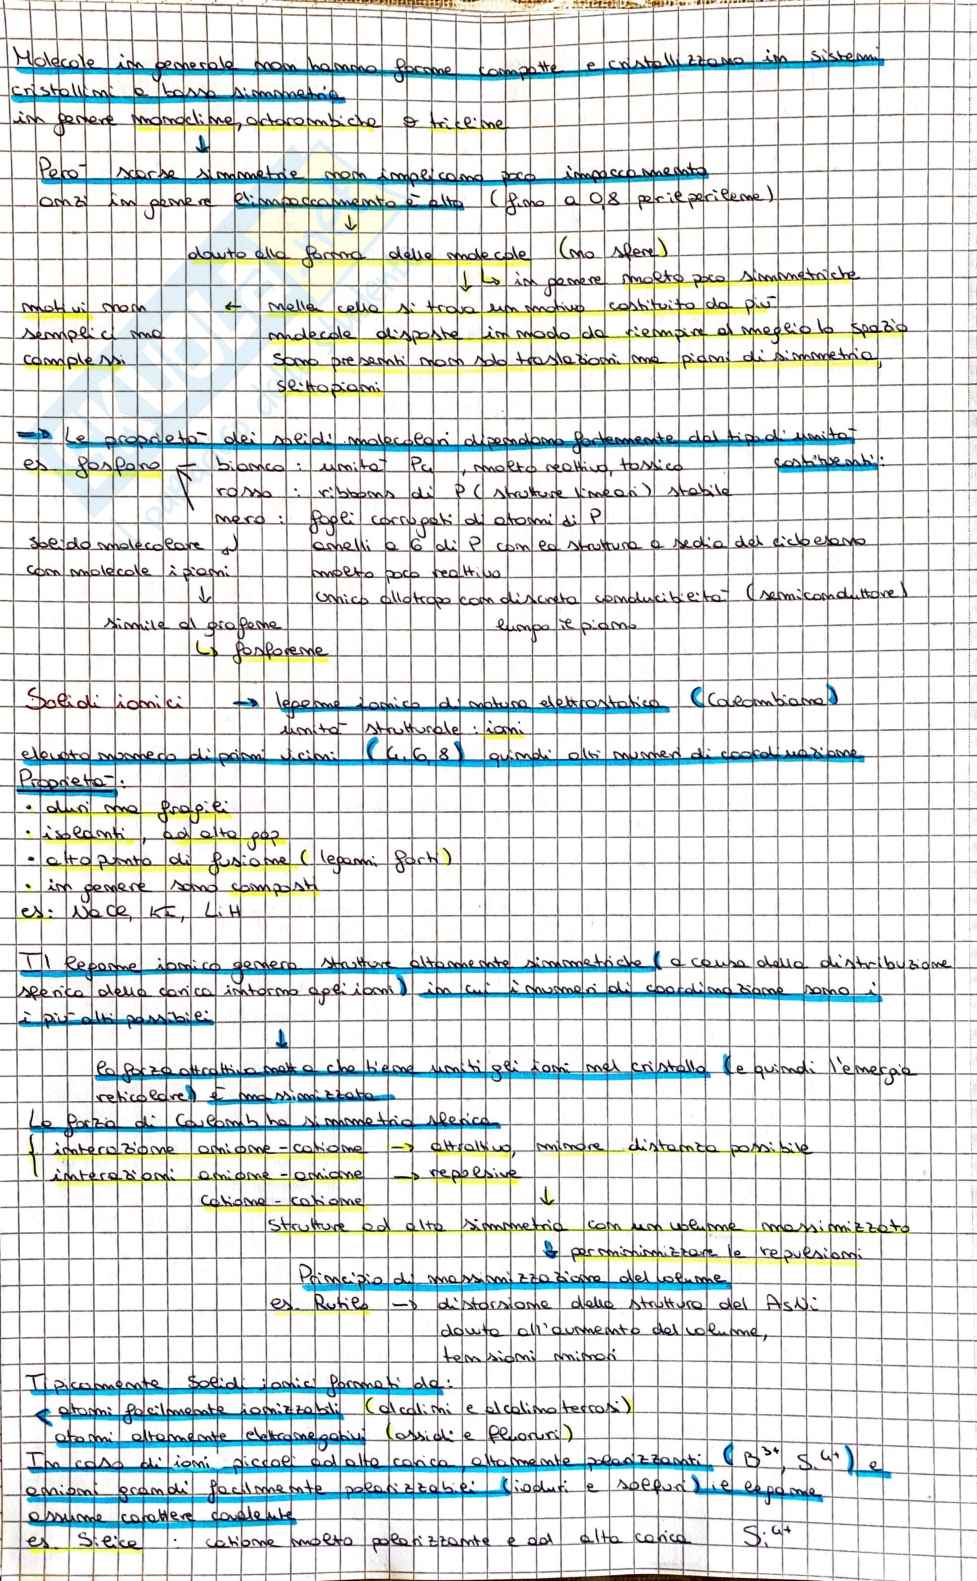 Molecole in generale non hanno forme compatte e cristallizzano in sistemi
cristallini a bassa simmetria
in genere monocline, ortorombiche o tricline
↓
Però scarse simmetrie non implicano poco impaccamento
anzi in genere l'impaccamento è alto (fino a 0,8 per il perilene)
↓
dovuto alla forma delle molecole (no sfere)
↓ ↳ in genere molto poco simmetriche
motivi non ← nella cella si trova un motivo costituito da più
semplici ma molecole disposte in modo da riempire al meglio lo spazio
complessi sono presenti non solo traslazioni ma piani di simmetria,
slittopiani
→ Le proprietà dei solidi molecolari dipendono fortemente dal tipo di unità
es fosforo - bianco : unità P4, molto reattivo, tossico costituenti:
rosso : ribbons di P (strutture lineari) stabile
nero : fogli corrugati di atomi di P
solido molecolare anelli a 6 di P con la struttura a sedia del cicloesano
con molecole i piani molto poco reattivo
↓ unico allotropo con discreta conducibilità (semiconduttore)
simile al grafene lungo il piano
↳ fosforene
Solidi ionici → legame ionico di natura elettrostatica (Coulombiana)
unità strutturale : ioni
elevato numero di primi vicini (4,6,8) quindi alti numeri di coordinazione
Proprietà:
• duri ma fragili
• isolanti, ad alto gap
• alto punto di fusione (legami forti)
• in genere sono composti
es: NaCl, KI, LiH
Il legame ionico genera strutture altamente simmetriche (a causa della distribuzione
sferica della carica intorno agli ioni) in cui i numeri di coordinazione sono i
i più alti possibili
↓
la forza attrattiva netta che tiene uniti gli ioni nel cristallo (e quindi l'energia
reticolare) È massimizzata
La forza di Coulomb ha simmetria sferica
interazione anione-catione → attrattiva, minore distanza possibile
interazioni anione-anione → repulsive
catione-catione ↓
Strutture ad alta simmetria con un volume massimizzato
↓ per minimizzare le repulsioni
Principio di massimizzazione del volume
es. Rutilo → distorsione della struttura del AsNi
dovuta all'aumento del volume,
tensioni minori
Tipicamente Solidi ionici formati da:
< atomi facilmente ionizzabili (alcalini e alcalino terrosi)
atomi altamente elettronegativi (ossidi e fluoruri)
In caso di ioni piccoli ad alta carica altamente polarizzanti (B3+, Si4+) e
anioni grandi facilmente polarizzabili (ioduri e solfuri) il legame
assume carattere covalente
es. Silice : catione molto polarizzante e ad alta carica Si4+